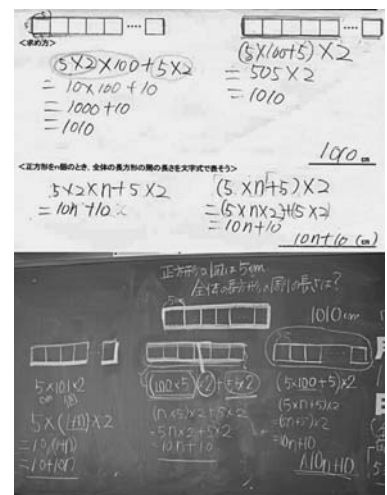 <求め方>
5×2×100+5×2
= 10×100+10
= 1000+10
= 1010
(5×100+5)×2
= 505×2
= 1010
1010 cm
<正方形をn個のとき、全体の長方形の周の長さを文字式で表そう>
5×2×n+5×2
= 10n+10
(5×n+5)×2
= (5×n×2)+(5×2)
= 10n+10
10n+10 (cm)
正方形の1辺は5cm
全体の長方形の周りの長さは?
1010cm
5×101×2
5×(1+n)×2
= 10(1+n)
= 10+10n
(100×5)×2+5×2
(n×5)×2+5×2
= 5n×2+5×2
= 10n+10
(5×100+5)×2
(5×n+5)×2
= 10n+10
10n+10